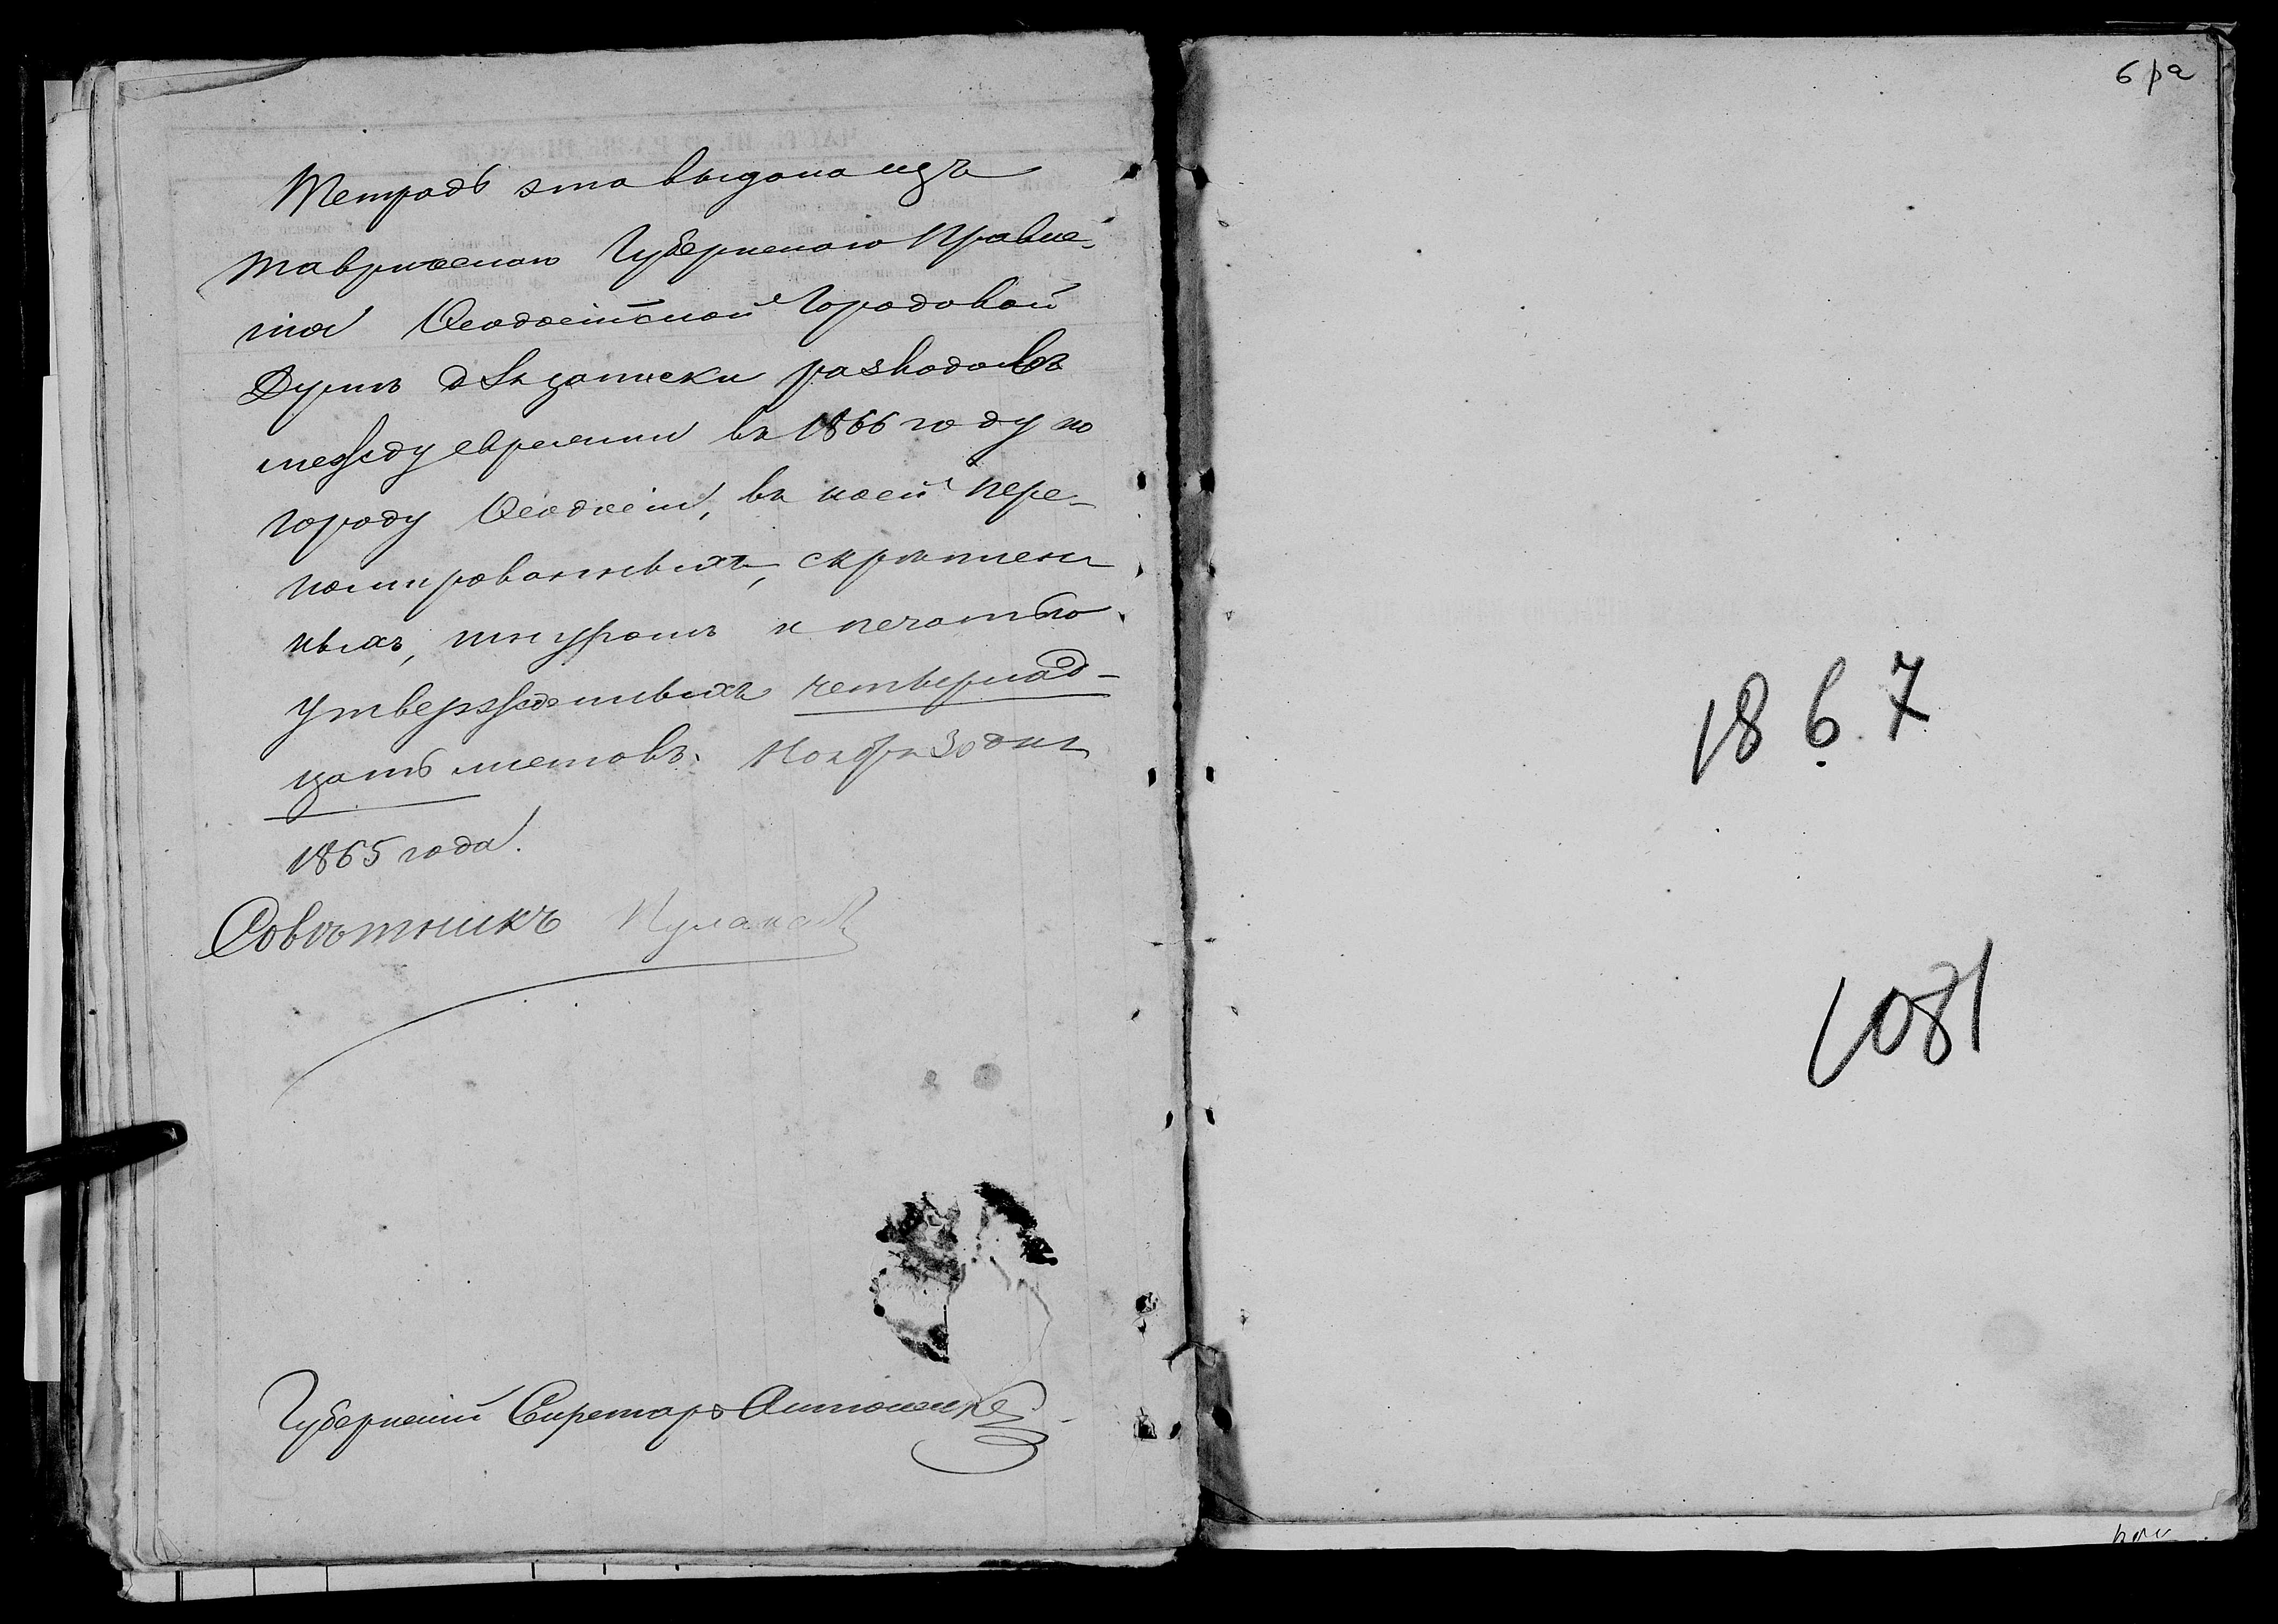 Тетрадь эта выдана изъ
Таврическаго Губернскаго Правле-
нія Ѳеодосійской Городовой
Думѣ для записки разводовъ
между евреями въ 1866 году по
городу Ѳеодосіи, въ коей пере-
номированныхъ, скрѣплен
ныхъ, шнуромъ и печатью
утвержденныхъ четырнад-
цать листовъ. Ноября 30 дня
1865 года.
Совѣтникъ
Губернскій Секретарь Антоненко
6 ра
1867
1081